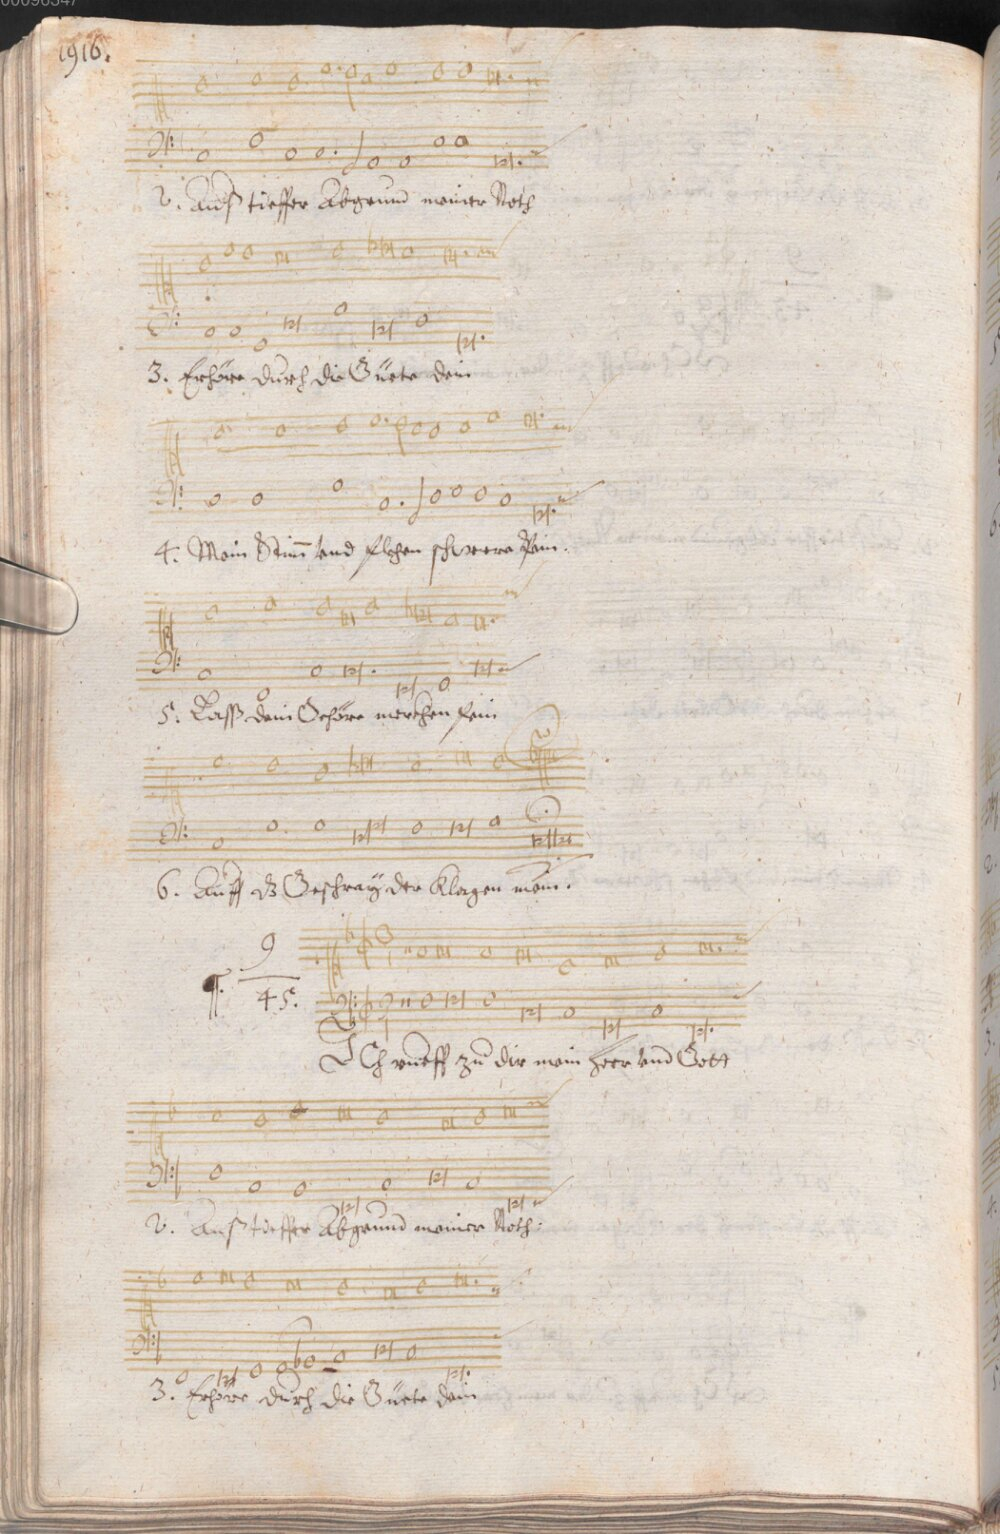 00096347
1916.
2. Auß tieffer Abgrund meiner Noth
3. Erhöre durch die Güete dein
4. Mein Stim̅ vnd flehen schwere Pein.
5. Lasß dein Gehöre merchen sein
6. Auff dz Geschray der Klagen mein.
9
¶. 45.
ICh rueff zu dir mein Herr vnd Gott
2. Auß tieffer Abgrund meiner Noth.
3. Erhöre durch die Güete dein